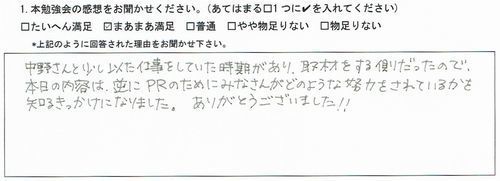 1. 本勉強会の感想をお聞かせください。（あてはまる□1つに✔を入れてください）
□たいへん満足 ☑まあまあ満足 □普通 □やや物足りない □物足りない
*上記のように回答された理由をお聞かせ下さい。
中野さんと少し似た仕事をしていた時期があり、取材をする側だったので、
本日の内容は、逆にPRのためにみなさんがどのような努力をされているかを
知るきっかけになりました。 ありがとうございました!!